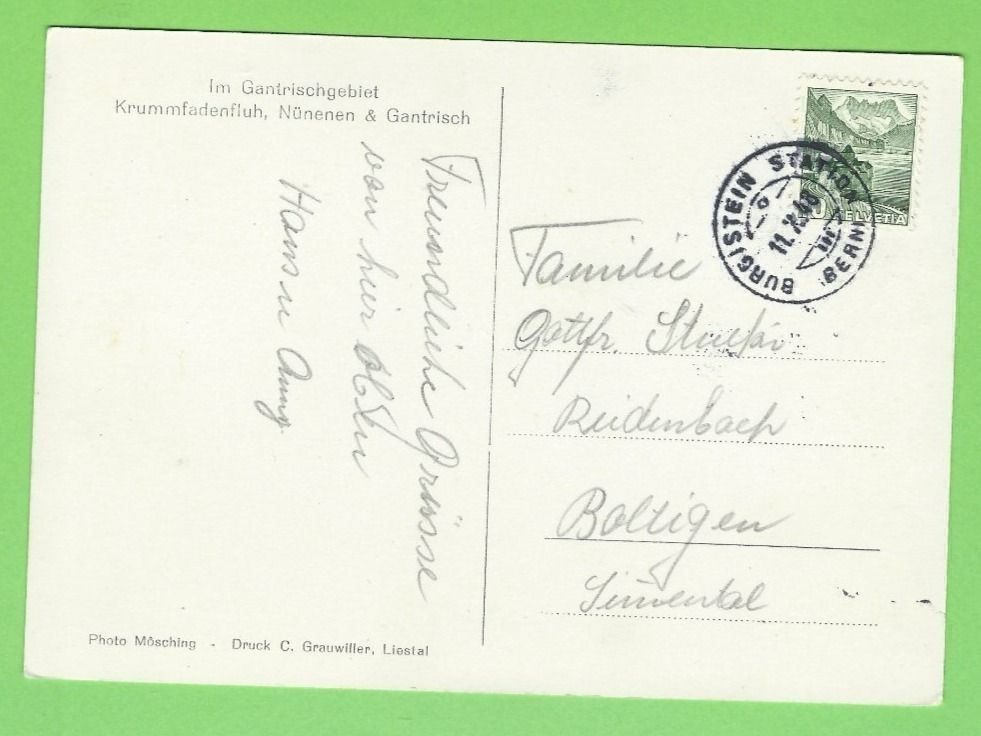 Im Gantrischgebiet
Krummfadenfluh, Nünenen & Gantrisch
Freundliche Grüsse
von hier oben
Hans u Anny
Photo Mösching - Druck C. Grauwiller, Liestal
HELVETIA
BURGISTEIN STATION
(BERN)
11.X.
Familie
Gottfr.
Reidenbach
Boltigen
Simmental